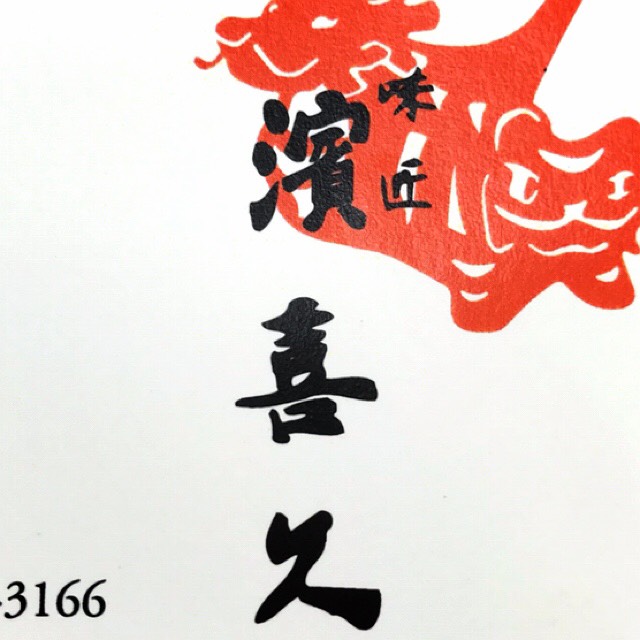 味匠
濱喜久
-3166